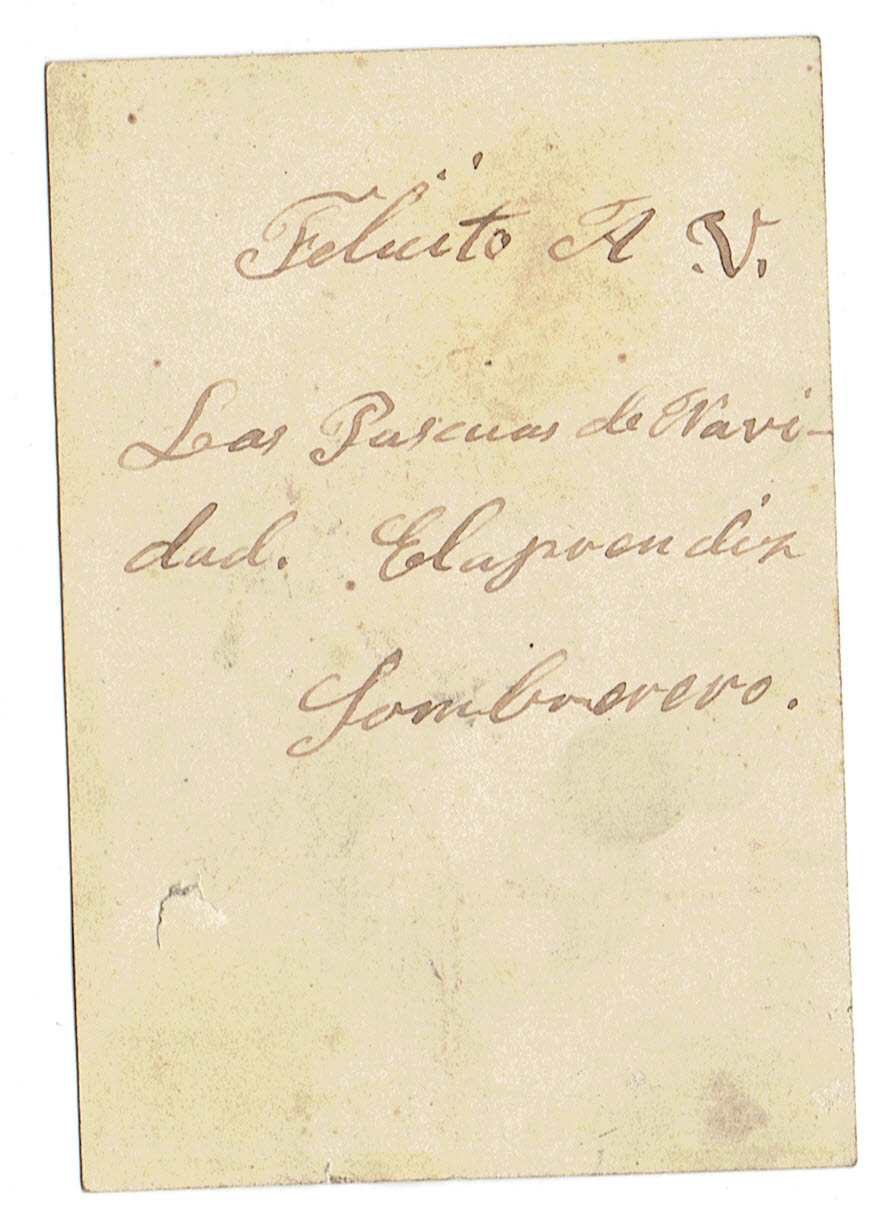 Felicito A V.
Las Pascuas de Navi-
dad. El aprendiz
Sombrerero.